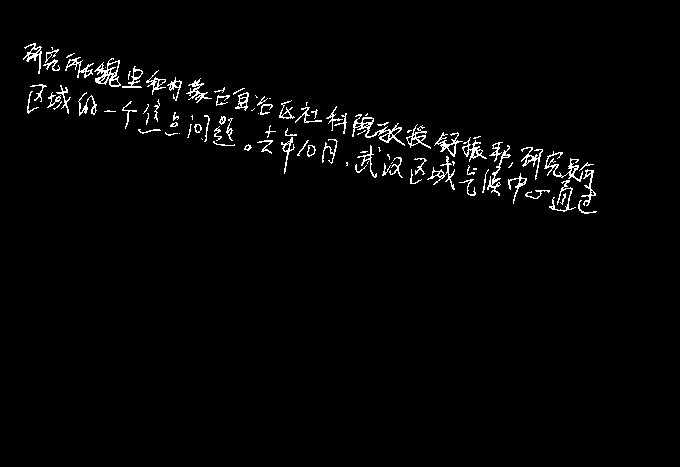 研究所长鬼里和内蒙古自治区社科院教授舒振邦,研究员奇
区域的一个焦点问题。去年10月,武汉区域气候中心通过